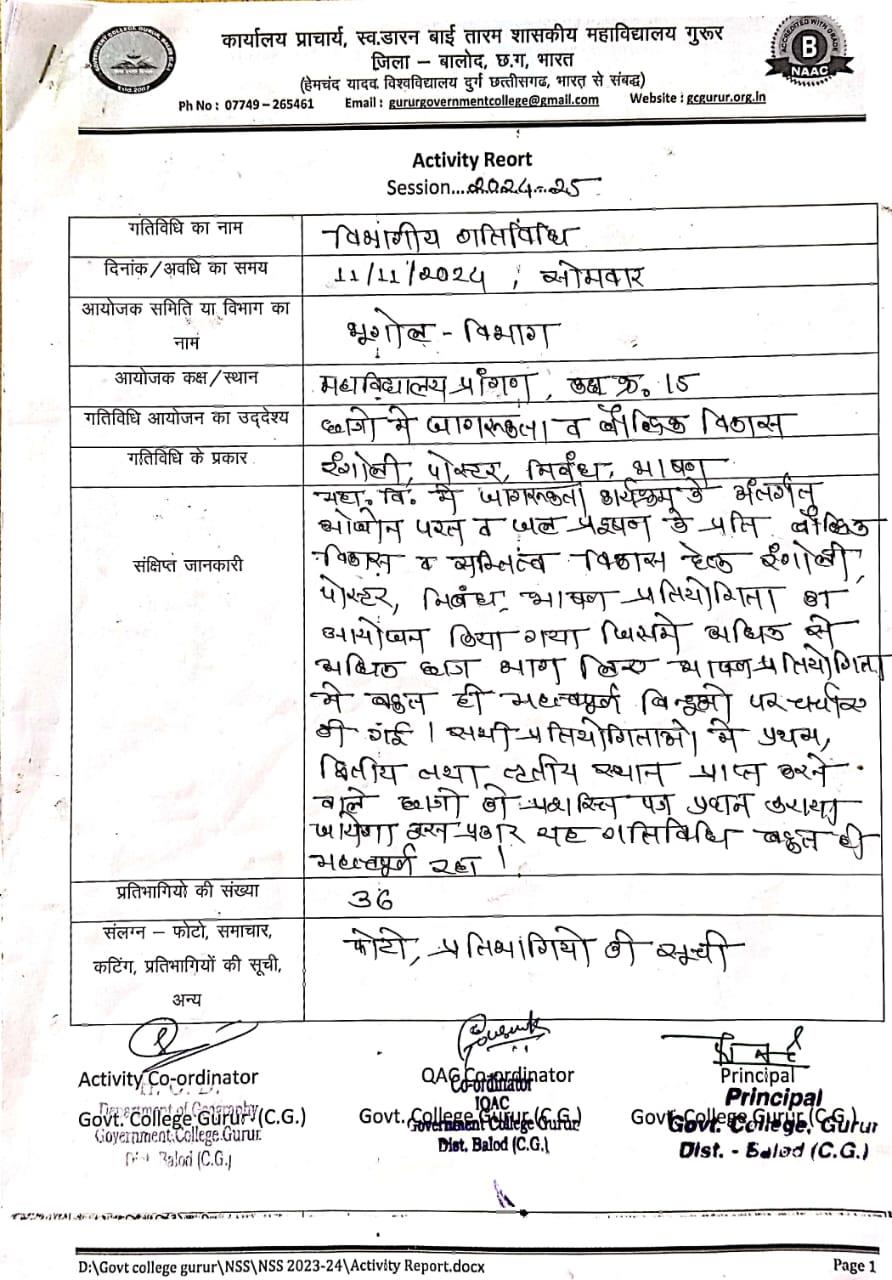 कार्यालय प्राचार्य, स्व.डारन बाई तारम शासकीय महाविद्यालय गुरूर
जिला – बालोद, छ.ग, भारत
(हेमचंद यादव विश्वविद्यालय दुर्ग छत्तीसगढ, भारत से संबद्ध)
Ph No : 07749 – 265461 Email : gururgovernmentcollege@gmail.com Website : gcgurur.org.in
ACCREDITED WITH GRADE
B
NAAC
Activity Reort
Session....2024-25
गतिविधि का नाम विभागीय गतिविधि
दिनांक/अवधि का समय 11/11/2024 , सोमवार
आयोजक समिति या विभाग का
नाम भूगोल - विभाग
आयोजक कक्ष/स्थान महाविद्यालय प्रांगण, कक्ष क्र. 15
गतिविधि आयोजन का उद्देश्य छात्रो मे जागरूकता व बौध्दिक विकास
गतिविधि के प्रकार रंगोली, पोस्टर, निबंध, भाषण
संक्षिप्त जानकारी
महा. वि. मे जागरूकता कार्यक्रम के अंतर्गत
ओजोन परत व जल प्रदूषण के प्रति बौध्दिक
विकास व व्यक्तित्व विकास हेतु रंगोली,
पोस्टर, निबंध, भाषण प्रतियोगिता का
आयोजन किया गया जिसमे अधिक से
अधिक छात्र भाग लिए भाषण प्रतियोगिता
मे बहुत ही महत्वपूर्ण बिन्दुओ पर चर्चाए
की गई । सभी प्रतियोगिताओ मे प्रथम,
द्वितीय तथा तृतीय स्थान प्राप्त करने
वाले छात्रो को प्रशस्ति पत्र प्रदान कराया
जायेगा इस प्रकार यह गतिविधि बहुत ही
महत्वपूर्ण रहा ।
प्रतिभागियो की संख्या 36
संलग्न – फोटो, समाचार,
कटिंग, प्रतिभागियों की सूची,
अन्य
फोटो, प्रतिभागियो की सूची
Activity Co-ordinator
H. O. D.
Department of Geography
Govt. College Gurur (C.G.)
Government College Gurur
Dist. Balod (C.G.)
QAC Co-ordinator
Co-ordinator
IQAC
Govt. College Gurur (C.G.)
Government College Gurur
Dist. Balod (C.G.)
Principal
Principal
Govt. College Gurur (C.G.)
Govt. College, Gurur
Dist. - Balod (C.G.)
D:\Govt college gurur\NSS\NSS 2023-24\Activity Report.docx Page 1